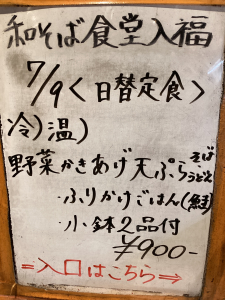 和そば食堂入福
7/9<日替定食>
冷)温)
野菜かきあげ天ぷら そば・うどん
・ふりかけごはん(鮭)
・小鉢2品付
¥900-
=入口はこちら⇒